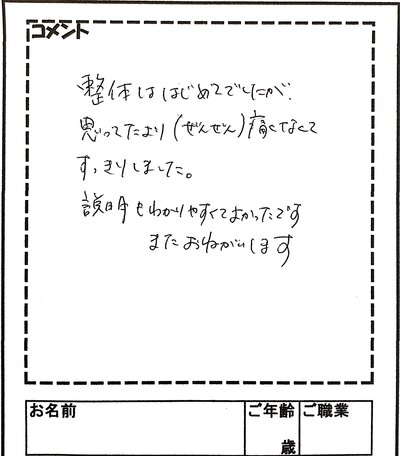 コメント
整体ははじめてでしたが、
思ってたより(ぜんぜん)痛くなくて
すっきりしました。
説明もわかりやすくてよかったです
またおねがいします
お名前 ご年齢 ご職業
歳